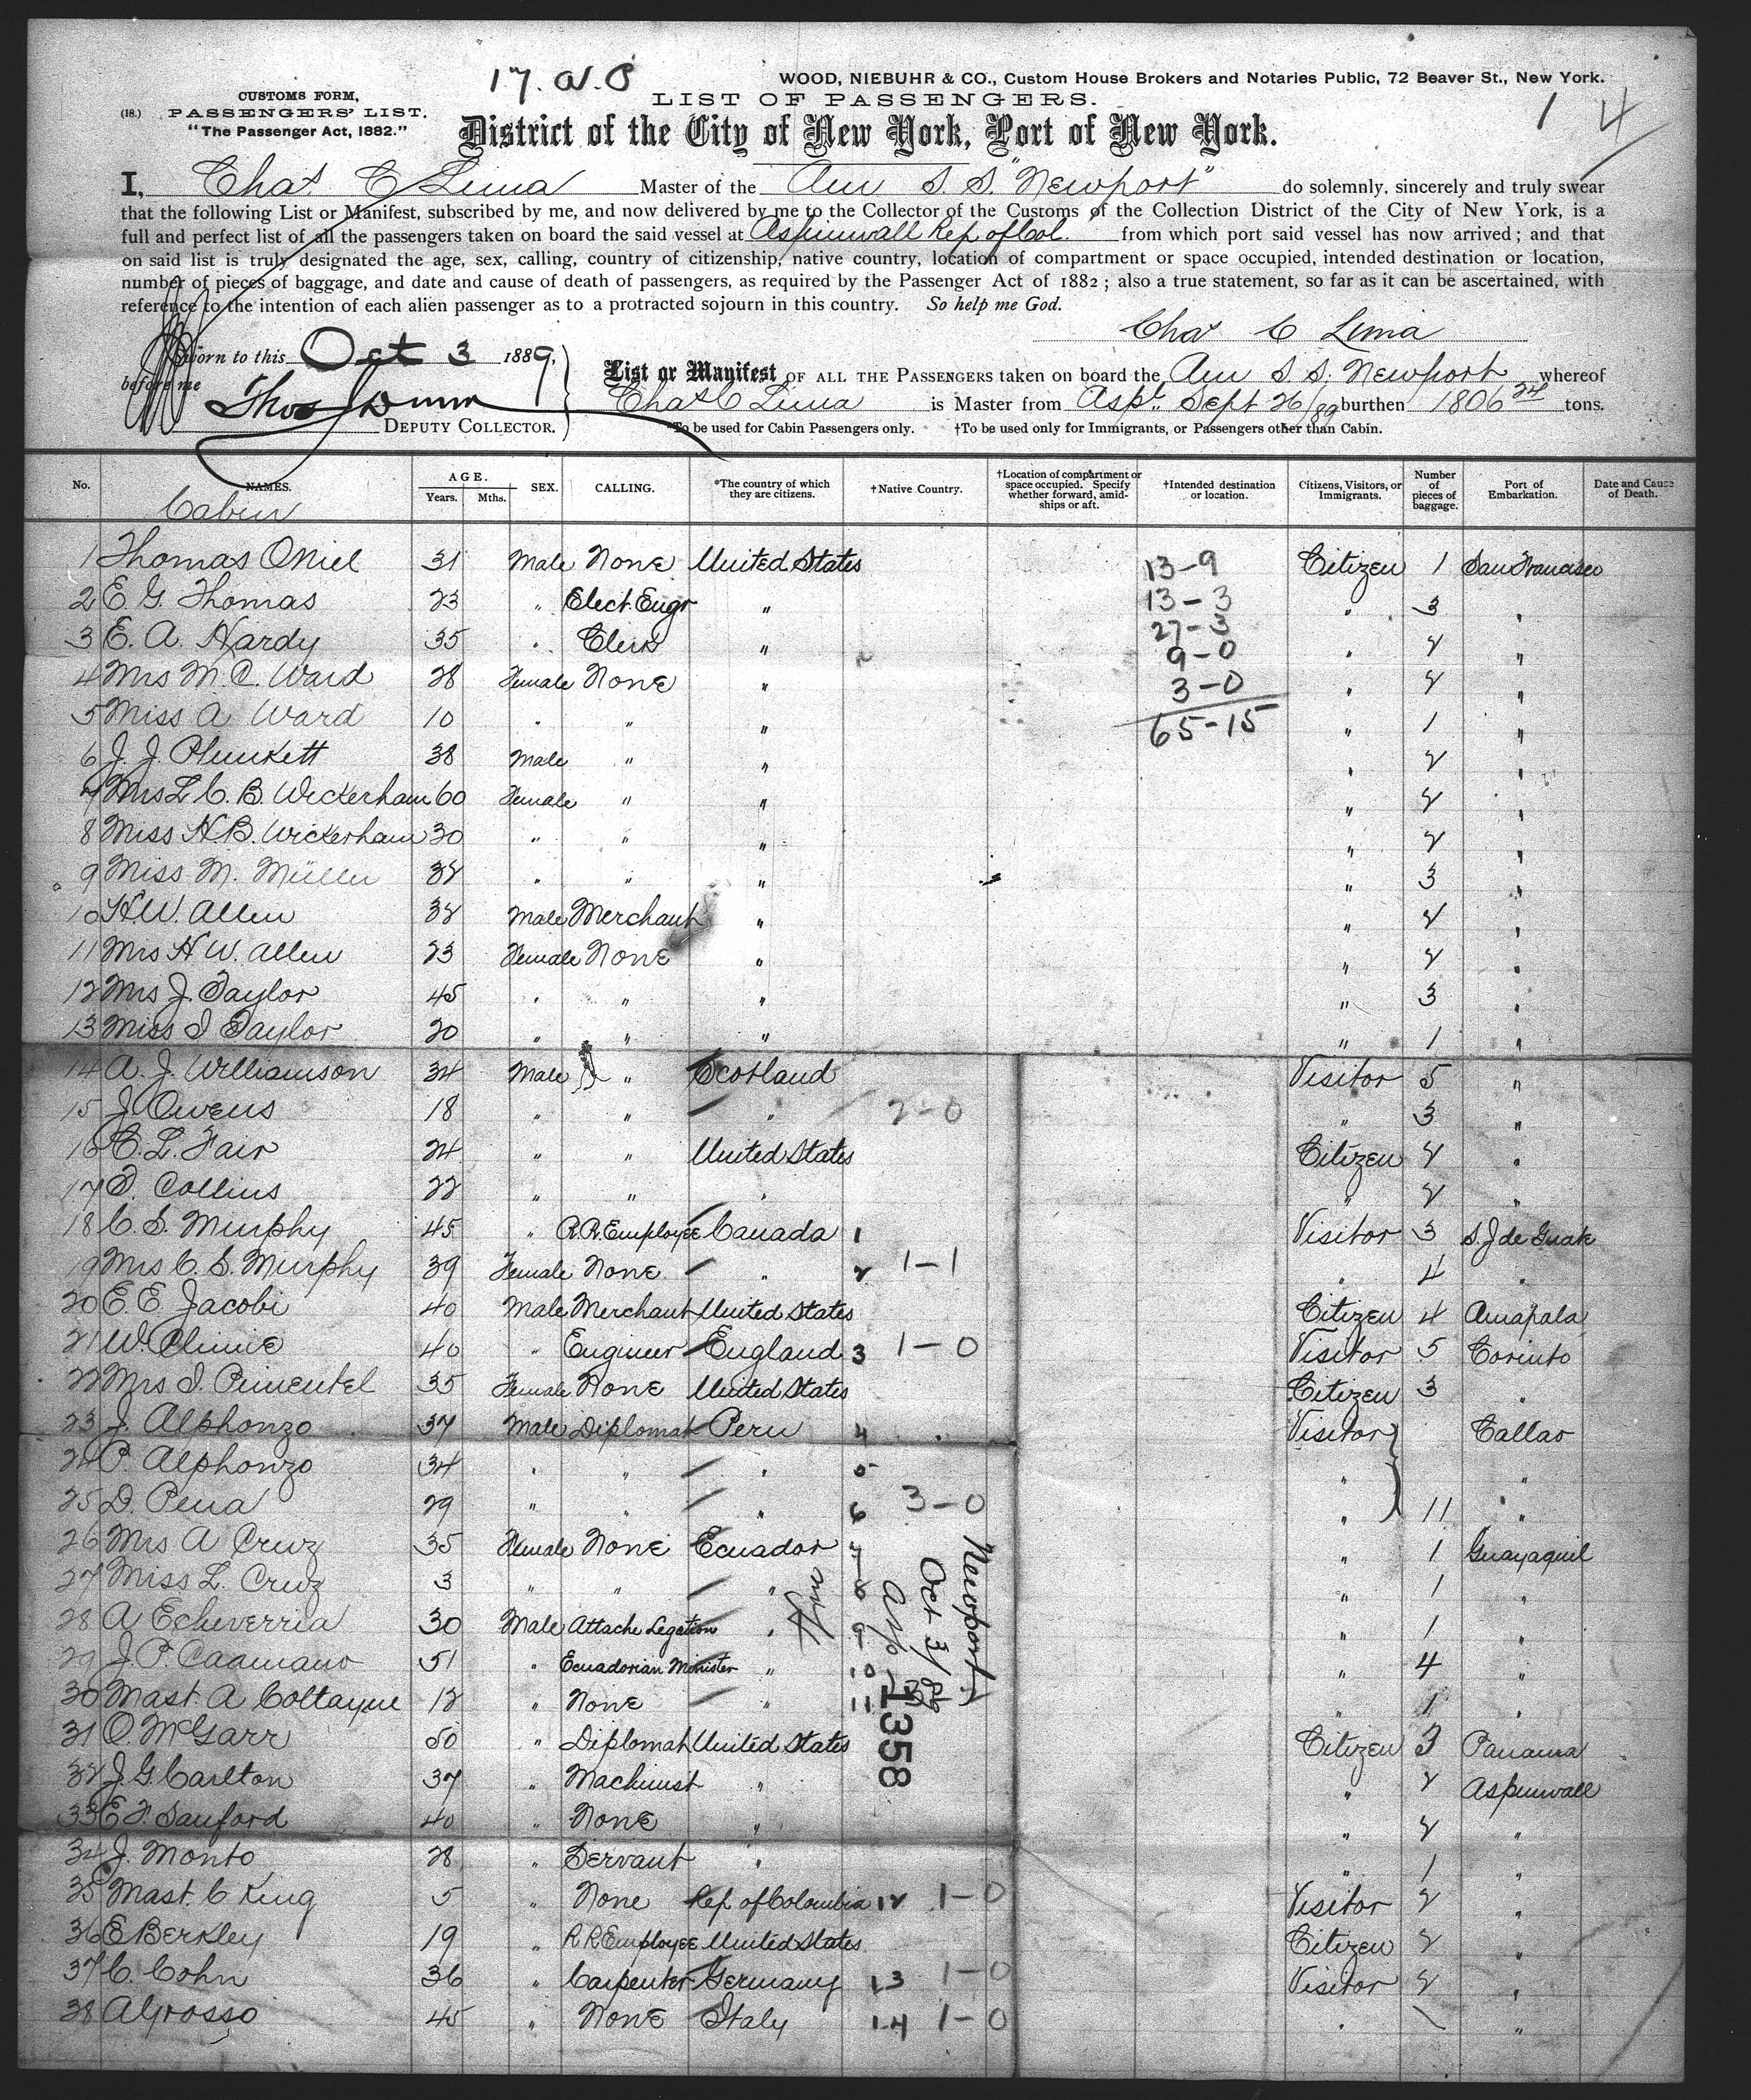 17. W. P
WOOD, NIEBUHR & CO., Custom House Brokers and Notaries Public, 72 Beaver St., New York.
(18.) CUSTOMS FORM,
PASSENGERS' LIST.
"The Passenger Act, 1882."
LIST OF PASSENGERS.
1 4
District of the City of New York, Port of New York.
I, Chas C Lima Master of the Am S. S. "Newport" do solemnly, sincerely and truly swear
that the following List or Manifest, subscribed by me, and now delivered by me to the Collector of the Customs of the Collection District of the City of New York, is a
full and perfect list of all the passengers taken on board the said vessel at Aspinwall Rep of Col. from which port said vessel has now arrived; and that
on said list is truly designated the age, sex, calling, country of citizenship, native country, location of compartment or space occupied, intended destination or location,
number of pieces of baggage, and date and cause of death of passengers, as required by the Passenger Act of 1882; also a true statement, so far as it can be ascertained, with
reference to the intention of each alien passenger as to a protracted sojourn in this country. So help me God.
Chas C Lima
Sworn to this Oct 3 1889,
before me
Thos Dunn
DEPUTY COLLECTOR.
List or Manifest OF ALL THE PASSENGERS taken on board the Am S. S. Newport whereof
Chas C Lima is Master from Aspl. Sept 26/89 burthen 1806 24 tons.
*To be used for Cabin Passengers only. †To be used only for Immigrants, or Passengers other than Cabin.
No. NAMES. AGE. Years. Mths. SEX. CALLING. *The country of which they are citizens. †Native Country. †Location of compartment or space occupied. Specify whether forward, amidships or aft. †Intended destination or location. Citizens, Visitors, or Immigrants. Number of pieces of baggage. Port of Embarkation. Date and Cause of Death.
Cabin
1 Thomas ONiel 31 Male None United States 13-9 Citizen 1 San Francisco
2 E. G. Thomas 23 " Elect. Engr " 13-3 " 3 "
3 E. A. Hardy 35 " Clerk " 27-3 " 2 "
4 Mrs M. C. Ward 28 Female None " 9-0 " 2 "
5 Miss A Ward 10 " " " 3-0 " 1 "
65-15
6 J. J. Plunkett 38 Male " " " 2 "
7 Mrs L. C. B. Wickerham 60 Female " " " 2 "
8 Miss H. B. Wickerham 30 " " " " 2 "
9 Miss M. Müller 32 " " " " 3 "
10 H. W. Allen 32 Male Merchant " " 2 "
11 Mrs H W. Allen 23 Female None " " 2 "
12 Mrs J. Taylor 45 " " " " 3 "
13 Miss I Taylor 20 " " " " 1 "
14 A. J. Williamson 34 Male " Scotland Visitor 5 "
15 J Owens 18 " " " 2-0 " 3 "
16 C. L. Fair 24 " " United States Citizen 2 "
17 D. Collins 22 " " " " 2 "
18 C. S. Murphy 45 " R.R. Employee Canada 1 Visitor 3 S. J de Guate
19 Mrs C. S. Murphy 39 Female None " 2 1-1 " 4 "
20 E. E. Jacobi 40 Male Merchant United States Citizen 4 Amapala
21 W. Clinie 40 " Engineer England 3 1-0 Visitor 5 Corinto
22 Mrs I. Pimentel 35 Female None United States Citizen 3 "
23 J. Alphonzo 37 Male Diplomat Peru 4 Visitor Callao
24 P. Alphonzo 34 " " " 5 " "
25 D. Pena 29 " " " 6 3-0 " 11 "
26 Mrs A Cruz 35 Female None Ecuador 7 " 1 Guayaquil
27 Miss L. Cruz 3 " " " 8 " 1 "
28 A Echeverria 30 Male Attache Legation " 9 " 1 "
29 J. P. Caamano 51 " Ecuadorian Minister " 10 " 4 "
30 Mast. A Coltayne 12 " None " 11 " 1 "
31 O. McGarr 50 " Diplomat United States Citizen 3 Panama
32 J. G. Carlton 37 " Machinist " " 2 Aspinwall
33 E F. Sanford 40 " None " " 2 "
34 J. Monto 28 " Servant " " 1 "
35 Mast. C King 5 " None Rep of Colombia 12 1-0 Visitor 2 "
36 E Berkley 19 " R R Employee United States Citizen 2 "
37 C. Cohn 36 " Carpenter Germany 13 1-0 Visitor 2 "
38 A Grosso 45 " None Italy 14 1-0 " \ "
Newport
Oct 3/89
Asp
1358